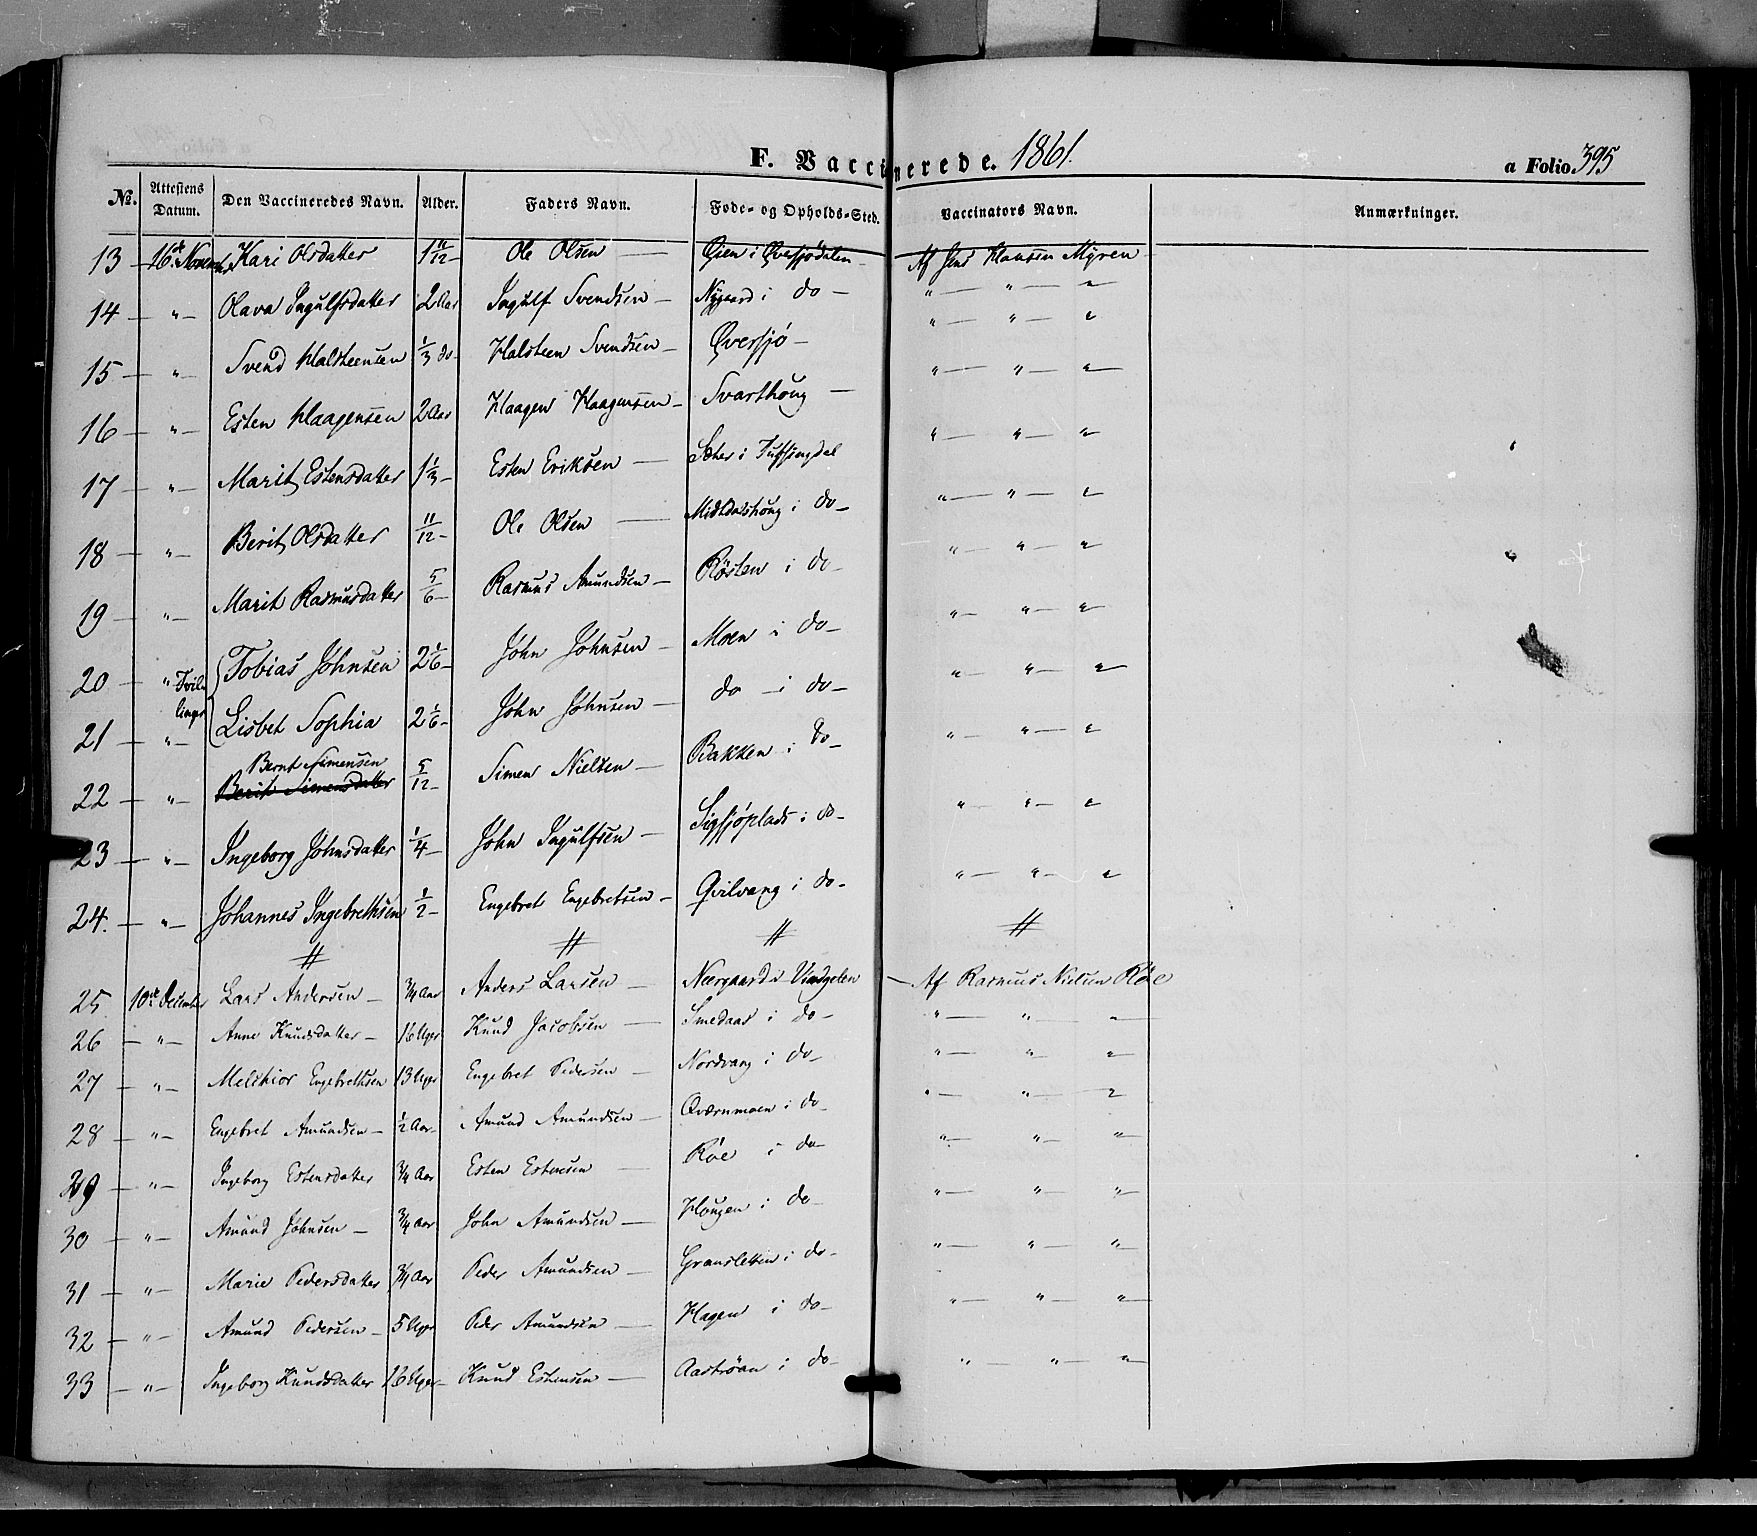 F. Vaccinerede. 1861. a Folio 395
No. Attestens Datum. Den Vaccineredes Navn. Alder. Faders Navn. Føde- og Opholds-Sted. Vaccinators Navn. Anmærkninger.
13 — 16de Novemb. Kari Olsdatter 1 11/12 — Ole Olsen — Øien i Øversjødalen Af Jens Hansen Myren
14 — " — Olava Ingulfsdatter 2 Aar Ingulf Svendsen — Nygaard i do — " — " — "
15 — " — Svend Halsteensen 1/3 do — Halsteen Svendsen — Øversjø — " — " — "
16 — " — Esten Haagensen 2 Aar Haagen Haagensen — Svarthoug — " — " — "
17 — " — Marit Estensdatter 1 1/3 — Esten Eriksen — Sæter i Tufsingdal " — " — "
18 — " — Berit Olsdatter 11/12 — Ole Olsen — Middalshoug i do — " — " — "
19 — " — Marit Rasmusdatter 5/6 — Rasmus Amundsen — Røsten i do — " — " — "
20 — " Tvil- Tobias Johnsen 2 1/6 — John Johnsen — Moen i do — " — " — "
21 — linger " — Lisbet Sophia 2 1/6 — John Johnsen — do — i do — " — " — "
Bernt Simensen
22 — " — Berit Simensdatter 5/12 — Simen Nielsen — Bakken i do — " — " — "
23 — " — Ingeborg Johnsdatter 1/4 — John Ingulfsen — Sigsjøplads i do — " — " — "
24. — " — Johannes Ingebrethsen 1/2 — Engebret Engebretsen — Qvilvang i do — " — " — "
25 10de December Lars Andersen — 3/4 Aar Anders Larsen — Neergaard i Vingelen — Af Rasmus Nielsen Røe
26 — " — Anne Knudsdatter — 16 Uger Knud Jacobsen — Smedaas i do — " — " — "
27 — " — Melchior Engebrethsen 13 Uger Engebret Pedersen — Nordvang i do — " — " — "
28 — " — Engebret Amundsen — 1/2 Aar — Amund Amundsen — Qværnmoen i do — " — " — "
29 — " — Ingeborg Estensdatter 3/4 Aar Esten Estensen — Røe i do — " — " — "
30 — " — Amund Johnsen — 3/4 Aar John Amundsen — Hougen i do — " — " — "
31 — " — Marie Pedersdatter 3/4 Aar Peder Amundsen — Gransletten i do — " — " — "
32 — " — Amund Pedersen — 5 Uger Peder Amundsen — Hagen i do — " — " — "
33 — " — Ingeborg Knudsdatter 26 Uger — Knud Estensen — Aastrøan i do — " — " — "